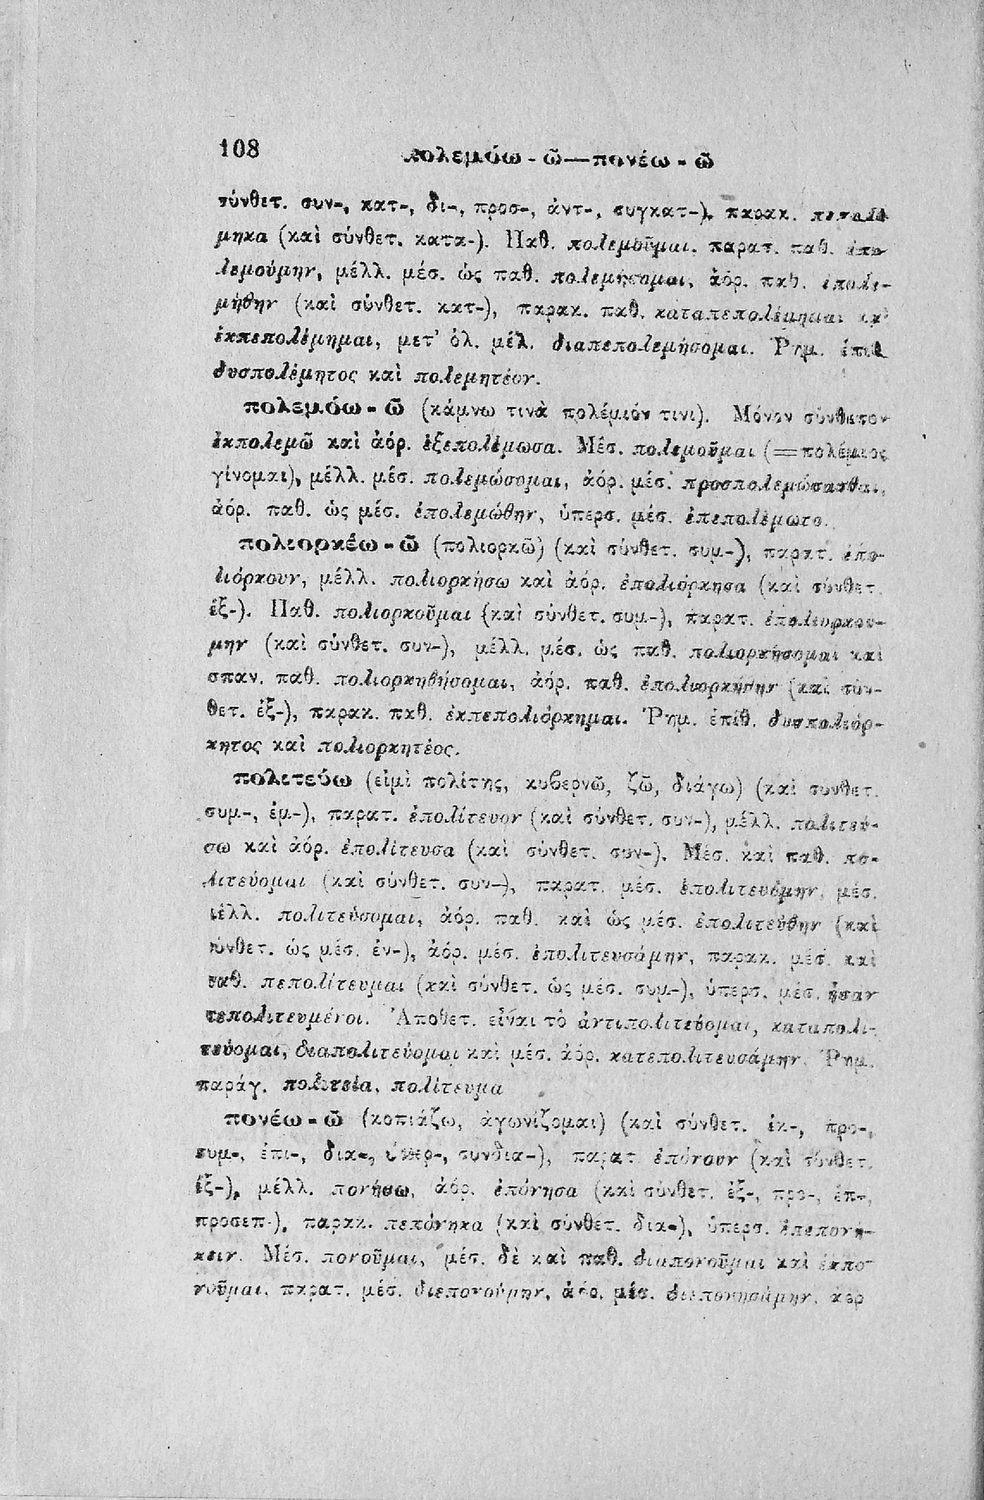 108 πολεμόω - ῶ—πονέω - ῶ
σύνθετ. συν-, κατ-, δι-, προσ-, ἀντ-, συγκατ-), παρακ. πεπολέ
μηκα (καὶ σύνθετ. κατα-). Παθ. πολεμοῦμαι. παρατ. παθ. ἐπο
λεμούμην, μέλλ. μέσ. ὡς παθ. πολεμήσομαι, ἀόρ. παθ. ἐπολε-
μήθην (καὶ σύνθετ. κατ-), παρακ. παθ. καταπεπολέμημαι καὶ
ἐκπεπολέμημαι, μετ' ὀλ. μέλ. διαπεπολεμήσομαι. Ῥημ. ἐπιθ
δυσπολέμητος καὶ πολεμητέον.
πολεμόω - ῶ (κάμνω τινὰ πολέμιόν τινι). Μόνον σύνθετον
ἐκπολεμῶ καὶ ἀόρ. ἐξεπολέμωσα. Μέσ. πολεμοῦμαι (=πολέμιος
γίνομαι), μέλλ. μέσ. πολεμώσομαι, ἀόρ. μέσ. προσπολεμώσασθαι,
ἀόρ. παθ. ὡς μέσ. ἐπολεμώθην, ὑπερσ. μέσ. ἐπεπολέμωτο.
πολιορκέω - ῶ (πολιορκῶ) (καὶ σύνθετ. συμ-), παρατ. ἐπο-
λιόρκουν, μέλλ. πολιορκήσω καὶ ἀόρ. ἐπολιόρκησα (καὶ σύνθετ.
ἐξ-). Παθ. πολιορκοῦμαι (καὶ σύνθετ. συμ-), παρατ. ἐπολιορκού-
μην (καὶ σύνθετ. συν-), μέλλ. μέσ. ὡς παθ. πολιορκήσομαι καὶ
σπαν. παθ. πολιορκηθήσομαι, ἀόρ. παθ. ἐπολιορκήθην (καὶ σύν-
θετ. ἐξ-), παρακ. παθ. ἐκπεπολιόρκημαι. Ῥημ. ἐπιθ. δυσπολιόρ-
κητος καὶ πολιορκητέος.
πολιτεύω (εἰμὶ πολίτης, κυβερνῶ, ζῶ, διάγω) (καὶ συνθετ.
συμ-, ἐμ-), παρατ. ἐπολίτευον (καὶ σύνθετ. συν-), μέλλ. πολιτεύ-
σω καὶ ἀόρ. ἐπολίτευσα (καὶ σύνθετ. συν-). Μέσ. καὶ παθ. πο-
λιτεύομαι (καὶ σύνθετ. συν-), παρατ. μέσ. ἐπολιτευόμην, μέσ.
μέλλ. πολιτεύσομαι, ἀόρ. παθ. καὶ ὡς μέσ. ἐπολιτεύθην (καὶ
σύνθετ. ὡς μέσ. ἐν-), ἀόρ. μέσ. ἐπολιτευσάμην, παρακ. μέσ. καὶ
παθ. πεπολίτευμαι (καὶ σύνθετ. ὡς μέσ. συμ-), ὑπερσ. μέσ. ἦσαν
πεπολιτευμένοι. Ἀποθετ. εἶναι τὸ ἀντιπολιτεύομαι, καταπολι-
τεύομαι, διαπολιτεύομαι καὶ μέσ. ἀόρ. κατεπολιτευσάμην. Ῥημ.
παράγ. πολιτεία, πολίτευμα
πονέω - ῶ (κοπιάζω, ἀγωνίζομαι) (καὶ σύνθετ. ἐκ-, προ-,
συμ-, ἐπι-, δια-, ὑπερ-, συνδια-), παρατ ἐπόνουν (καὶ σύνθετ.
ἐξ-), μέλλ. πονήσω, ἀόρ. ἐπόνησα (καὶ σύνθετ. ἐξ-, προ-, ἐπ-,
προσεπ-), παρακ. πεπόνηκα (καὶ σύνθετ. δια-), ὑπερσ. ἐπεπονή-
κειν. Μέσ. πονοῦμαι, μέσ. δὲ καὶ παθ. διαπονοῦμαι καὶ ἐκπο-
νοῦμαι, παρατ. μέσ. διεπονούμην, ἀόρ. μέσ. διεπονησάμην,